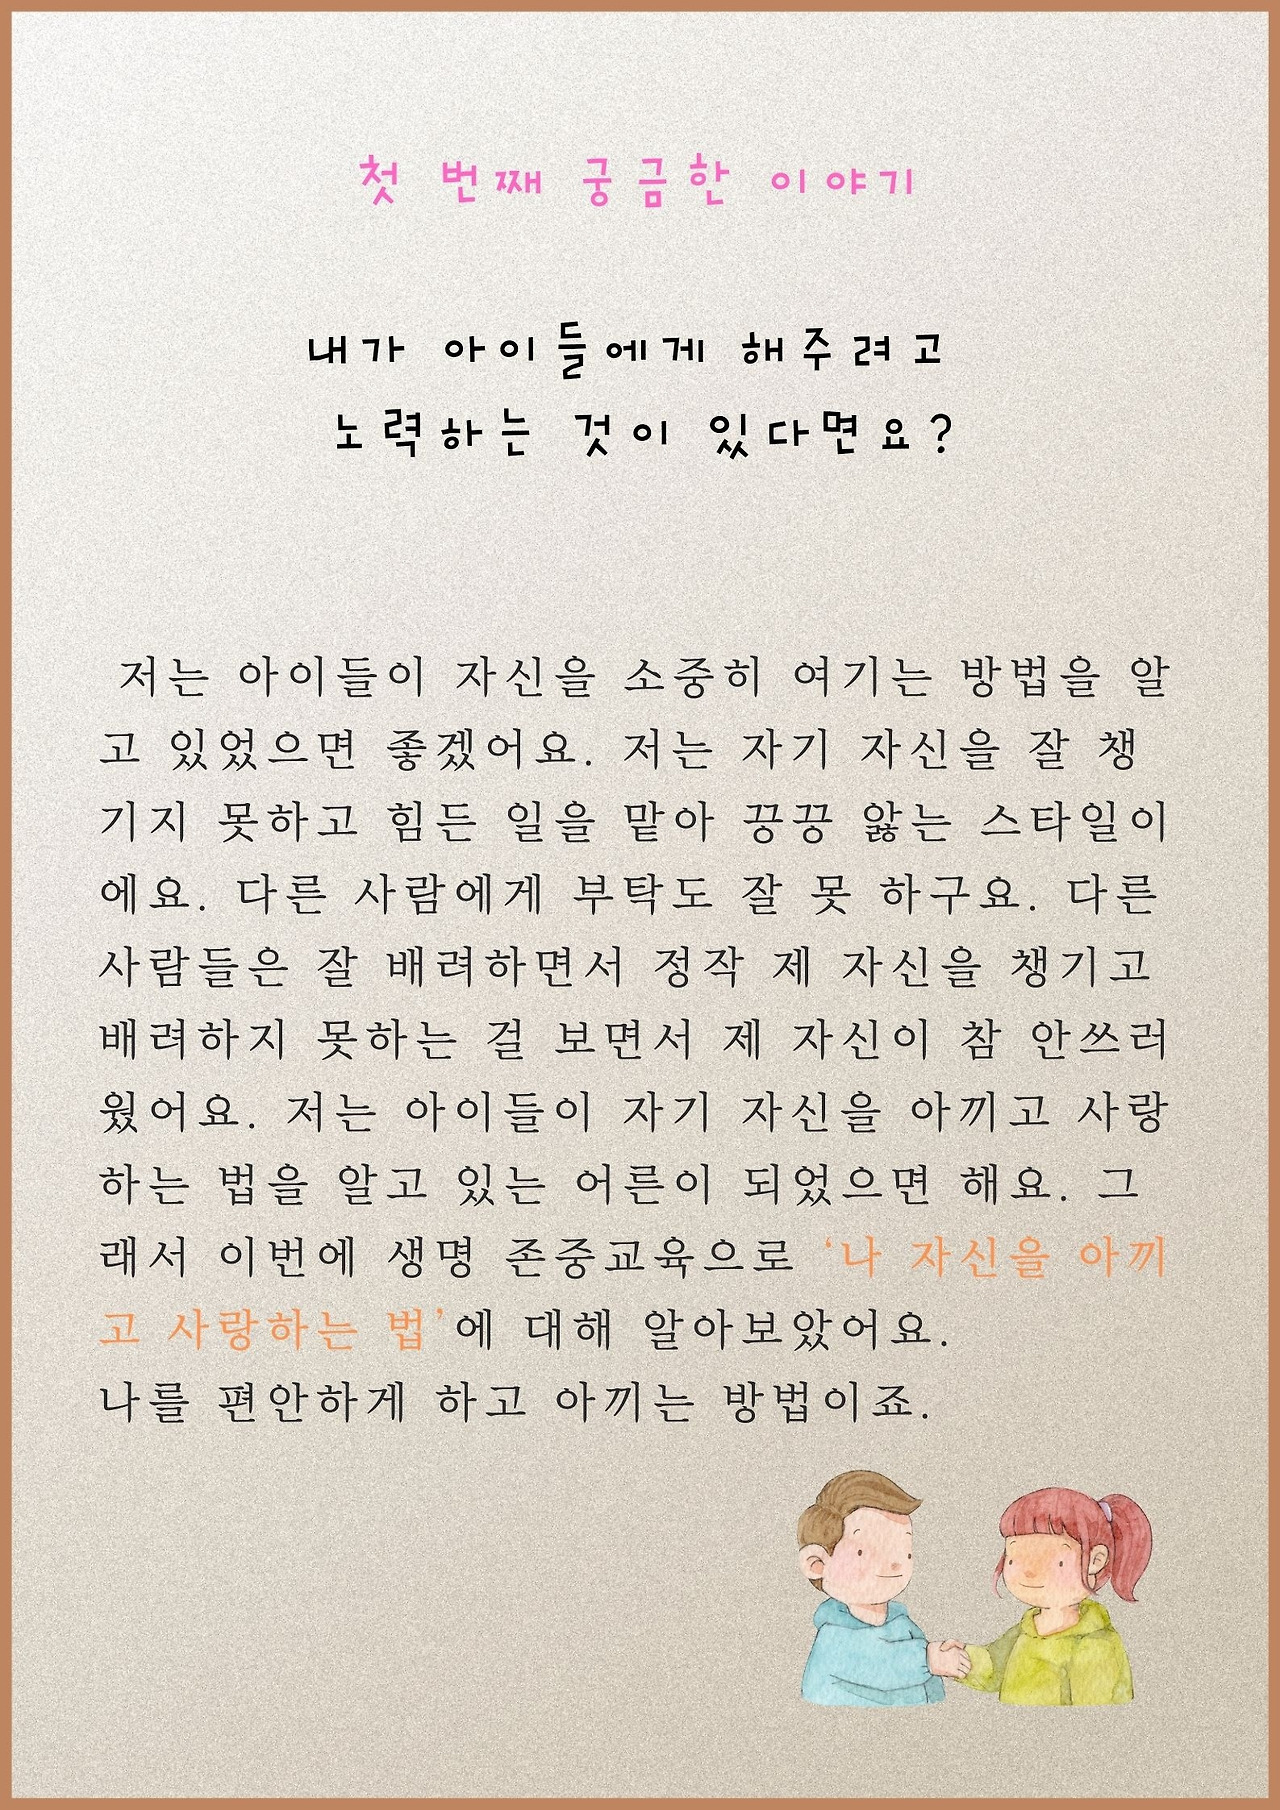 첫 번째 궁금한 이야기
내가 아이들에게 해주려고
노력하는 것이 있다면요?
저는 아이들이 자신을 소중히 여기는 방법을 알
고 있었으면 좋겠어요. 저는 자기 자신을 잘 챙
기지 못하고 힘든 일을 맡아 끙끙 앓는 스타일이
에요. 다른 사람에게 부탁도 잘 못 하구요. 다른
사람들은 잘 배려하면서 정작 제 자신을 챙기고
배려하지 못하는 걸 보면서 제 자신이 참 안쓰러
웠어요. 저는 아이들이 자기 자신을 아끼고 사랑
하는 법을 알고 있는 어른이 되었으면 해요. 그
래서 이번에 생명 존중교육으로 ‘나 자신을 아끼
고 사랑하는 법’에 대해 알아보았어요.
나를 편안하게 하고 아끼는 방법이죠.